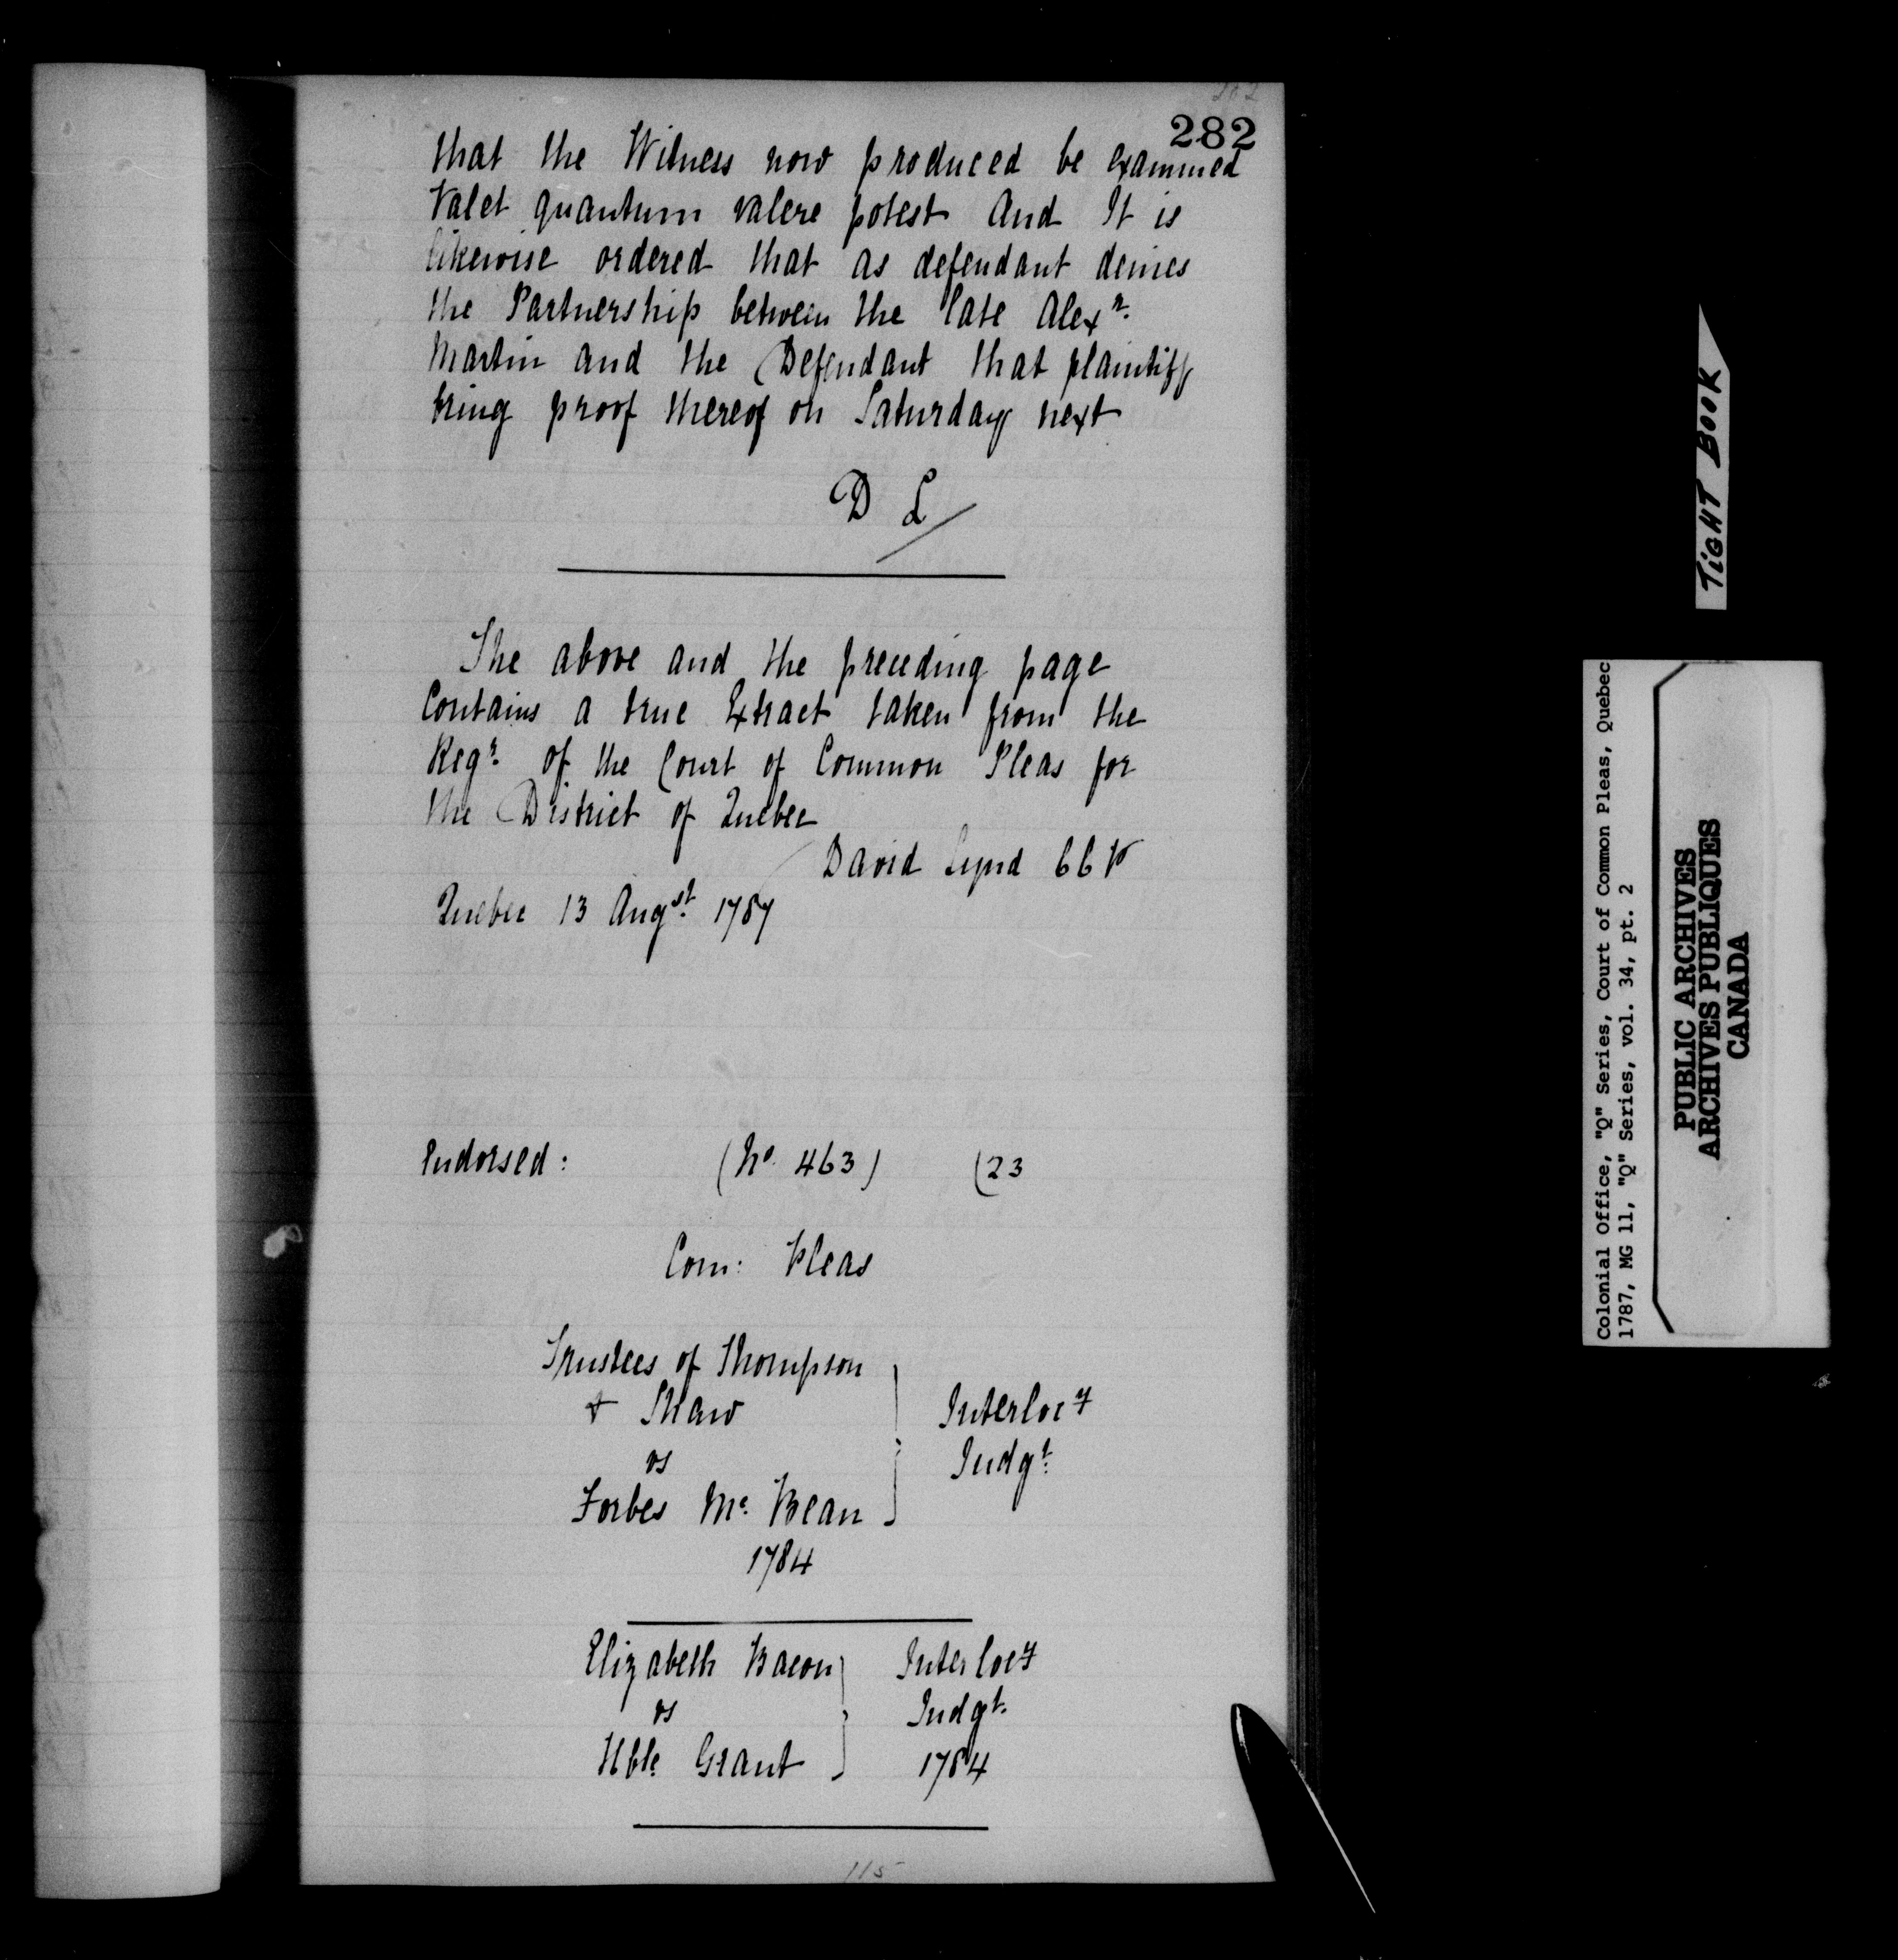 282
that the Witness now produced be examined
Valet quantum valere potest And It is
likewise ordered that as defendant denies
the Partnership between the late Alexr.
Martin and the Defendant that plaintiff
bring proof thereof on Saturday next
D L
The above and the preceding page
Contains a true Extract taken from the
Regr. of the Court of Common Pleas for
the District of Quebec
David Lynd CCP
Quebec 13 Augst. 1787
Endorsed: (No. 463) (23
Com: Pleas
Trustees of Thompson
& Shaw
vs
Forbes Mc. Bean
1784
Interlocy
Judgt.
Elizabeth Bacon
vs
Hble. Grant
Interlocy
Judgt.
1784
115
TIGHT BOOK
Colonial Office, "Q" Series, Court of Common Pleas, Quebec
1787, MG 11, "Q" Series, vol. 34, pt. 2
PUBLIC ARCHIVES
ARCHIVES PUBLIQUES
CANADA